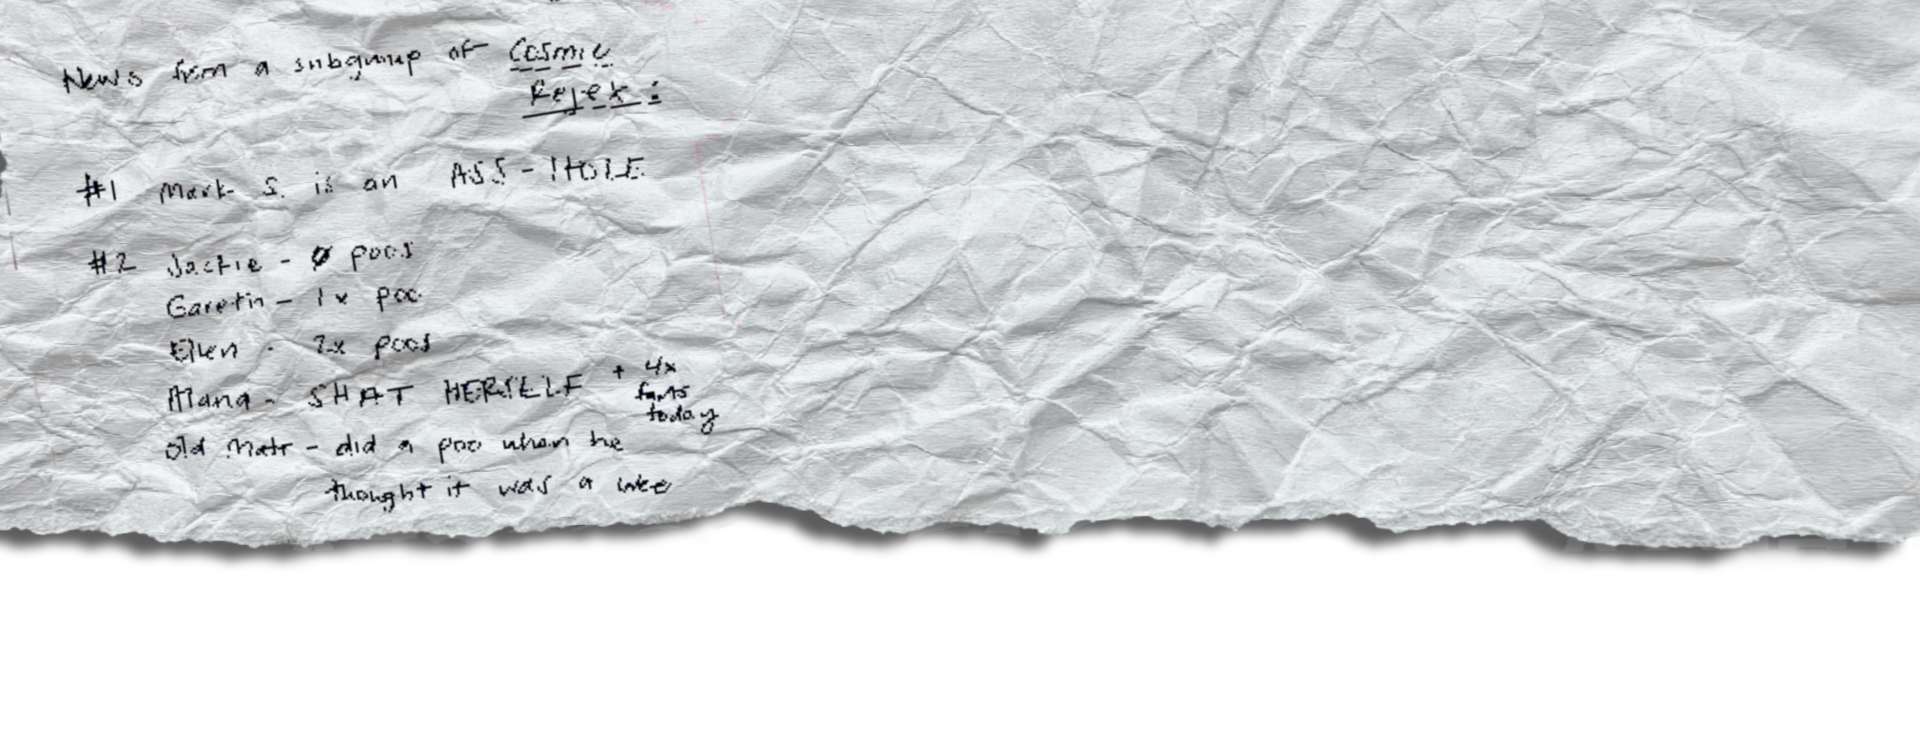 News from a subgroup of Cosmic
Rejex :
#1 Mark S. is an ASS-HOLE
#2 Jackie - 0 poos
Gareth - 1x poo
Ellen - 2x poos
Alana - SHAT HERSELF + 4x
farts
today
Old Matt - did a poo when he
thought it was a wee